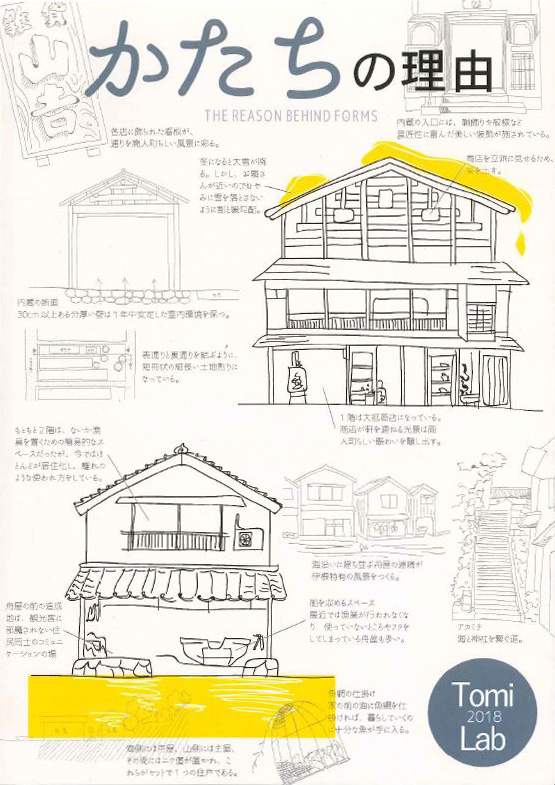 かたちの理由
THE REASON BEHIND FORMS
各店に飾られた看板が、
通りを商人町らしい風景に彩る。
内蔵の入口には、鞘飾りや板様など
意匠性に富んだ美しい装飾が施されている。
冬になると大雪が降
る。しかし、お隣さ
んが近いのでむやみ
に雪を落とさない
ように割と緩勾配。
商店を立派に見せるため、
内蔵の断面
30cm以上もある分厚い壁は1年中安定した室内環境を保つ。
表通りと裏通りを結ぶように、
短冊状の細長い土地割りに
なっている。
1階は大抵商店になっている。
商店が軒を連ねる光景は商
人町らしい賑わいを醸し出す。
もともと2階は、ないか漁
具を置くための簡易的なス
ペースだったが、今ではほ
とんどが居住化し、離れの
ような使われ方をしている。
海沿いに建ち並ぶ舟屋の連続が
伊根特有の風景をつくる。
舟屋の前の造成
地は、観光客に
邪魔されない住
民同士のコミュニ
ケーションの場
船を収めるスペース
最近では漁業が行われなくな
り、使っていないところやフタを
してしまっている舟屋も多い。
アカミチ
海と神社を繋ぐ道。
魚網の仕掛け
家の前の海に魚網を仕
掛ければ、暮らしていくの
に十分な魚が手に入る。
海側には舟屋、山側には主屋、
その間には二ワ
れらがセットで1つの住戸である。
Tomi
2018
Lab